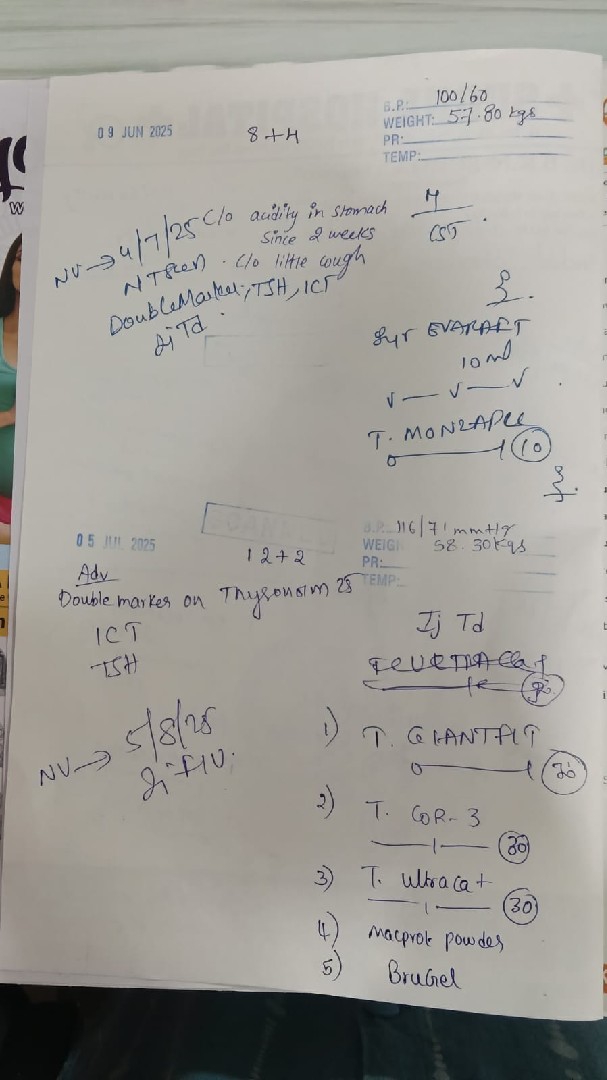 09 JUN 2025
8+4
B.P.: 100/60
WEIGHT: 57.80 kgs
PR:
TEMP:
NV → 4/7/25
C/o acidity in stomach
since 2 weeks
C/o little cough
NT Scan
Double Marker, TSH, ICT
Inj Td
Syr EVAPART
10 ml
T. MONZAPLU
10
05 JUL 2025
12+2
B.P. 116/71 mmHg
WEIGH 58.30 Kgs
PR:
TEMP:
Adv
Double marker on Thyronorm 25
ICT
TSH
Ij Td
NV → 5/8/25
1) T. GIANTFIT
30
2) T. COR-3
30
3) T. Ultracat
30
4) Macprot powder
5) BruGel